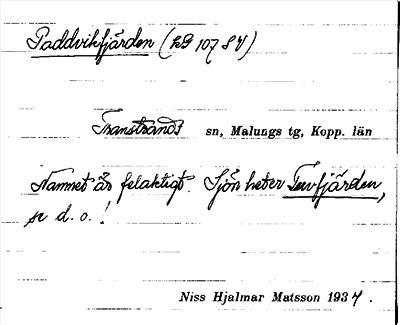 Paddvikfjärden (LG 107 S4)
Transtrands sn, Malungs tg, Kopp. län
Namnet är felaktigt. Sjön heter Tuvfjärden,
se d. o.!
Niss Hjalmar Matsson 1934.